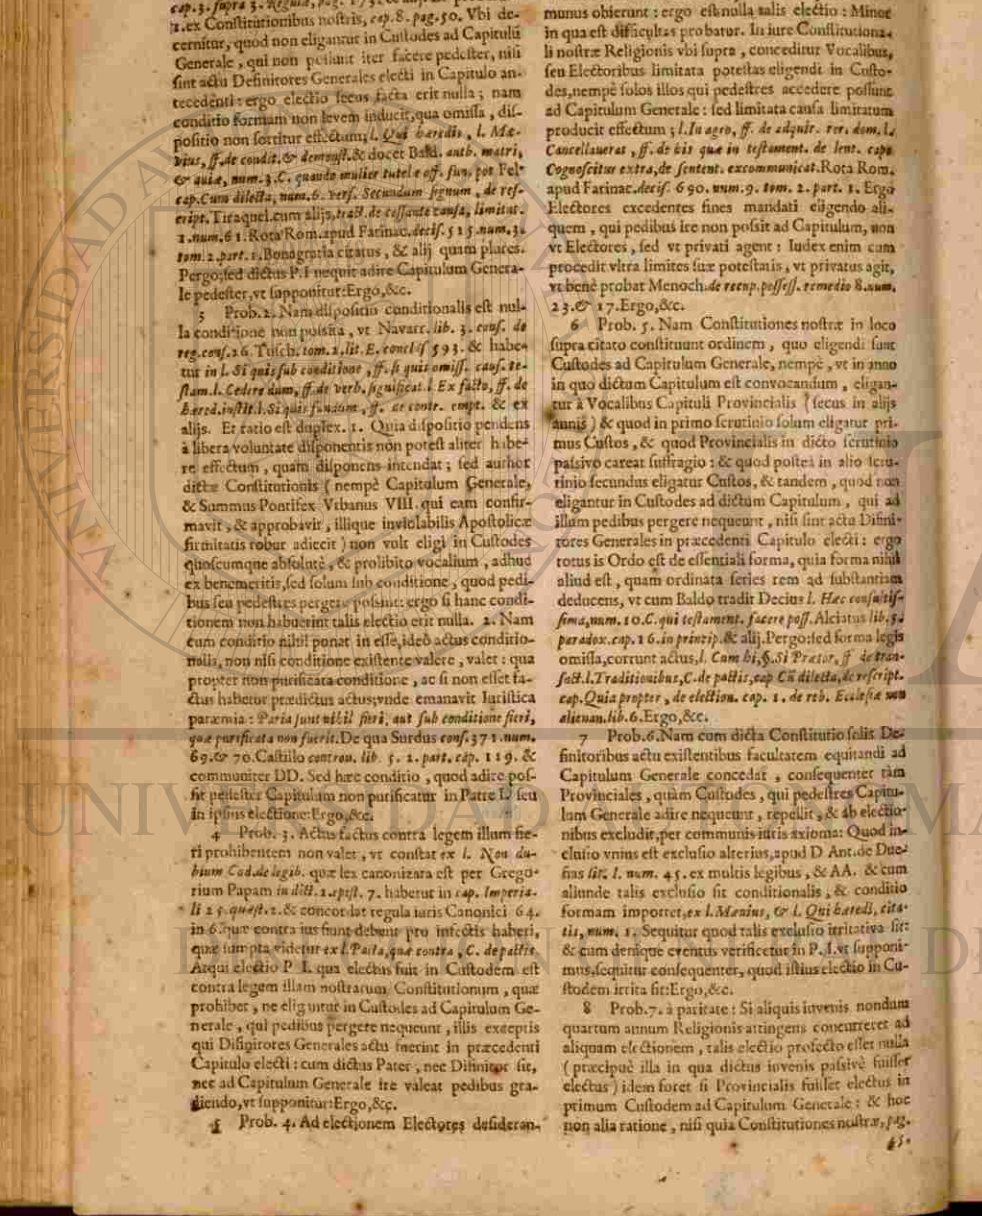 cap. 3. supra 3. Regulæ, pag.
1. ex Constitutionibus nostris, cap. 8. pag. 50. Vbi de-
cernitur, quod non eligantur in Custodes ad Capitulũ
Generale, qui non possunt iter facere pedester, nisi
sint actu Definitores Generales electi in Capitulo an-
tecedenti: ergo electio secus facta erit nulla; nam
conditio formam non levem inducit, qua omissa, dis-
positio non sortitur effectum; l. Qui hæredis, l. Mæ-
vius, ff. de condit. & demonst. & docet Bald. auth. matri,
& quiæ, num. 3. C. quando mulier tutelæ off. fun. pot Fel-
cap. Cum dilecta, num. 6. vers. Secundum signum, de res-
cript. Tiraquel. cum alijs, tract. de cessante causa, limitat.
1. num. 61. Rota Rom. apud Farinac. decis. 515. num. 3.
tom. 2. part. 1. Bonagratia citatus, & alij quam plures.
Pergo; sed dictus P. I nequit adire Capitulum Genera-
le pedester, vt supponitur: Ergo, &c.
3 Prob. 2. Nam dispositio conditionalis est nul-
la conditione non posita, vt Navarr. lib. 3. cons. de
reg. cons. 26. Tusch. tom. 2. lit. E. conclus 593. & habe-
tur in l. Si quis sub conditione, ff. si quis omiss. caus. te-
stam. l. Cedere dum, ff. de verb. significat. l Ex facto, ff. de
hæred. instit. l. Si quis fundum, ff. de contr. empt. & ex
alijs. Et ratio est duplex. 1. Quia dispositio pendens
à libera voluntate disponentis non potest aliter habe-
re effectum, quam disponens intendat; sed author
dictæ Constitutionis (nempè Capitulum Generale,
& Summus Pontifex Vrbanus VIII. qui eam confir-
mavit, & approbavit, illique inviolabilis Apostolicæ
firmitatis robur adiecit) non vult eligi in Custodes
quoscumque absolutè, & prolibito vocalium, adhuc
ex benemeritis, sed solum sub conditione, quod pedi-
bus seu pedestres pergere possint: ergo si hanc condi-
tionem non habuerint talis electio erit nulla. 2. Nam
cum conditio nihil ponat in esse, ideò actus conditio-
nalis, non nisi conditione existente valere, valet: qua
propter non purificata conditione, ac si non esset fa-
ctus habetur prædictus actus; vnde emanavit Iuristica
paræmia: Paria sunt nihil fieri, aut sub conditione fieri,
quæ purificata non fuerit. De qua Surdus cons. 371. num.
69. & 70. Castillo controu. lib. 5. 2. part. cap. 119. &
communiter DD. Sed hæc conditio, quod adire pos-
sit pedester Capitulum non purificatur in Patre I. seu
in ipsius electione: Ergo, &c.
4 Prob. 3. Actus factus contra legem illum fie-
ri prohibentem non valet, vt constat ex l. Non du-
bium Cod. de legib. quæ lex canonizata est per Grego-
rium Papam in dict. 2. epist. 7. habetur in cap. Imperia-
li 25. quæst. 2. & concordat regula iuris Canonici 64.
in 6. quæ contra ius fiunt debent pro infectis haberi,
quæ sumpta videtur ex l. Pacta, quæ contra, C. de pactis.
Atqui electio P I. qua electus fuit in Custodem est
contra legem illam nostrarum Constitutionum, quæ
prohibet, ne eligantur in Custodes ad Capitulum Ge-
nerale, qui pedibus pergere nequeunt, illis exceptis
qui Difinitores Generales actu fuerint in præcedenti
Capitulo electi: cum dictus Pater, nec Difinitor sit,
nec ad Capitulum Generale ire valeat pedibus gra-
diendo, vt supponitur: Ergo, &c.
5 Prob. 4. Ad electionem Electores desideran-
munus obierunt: ergo est nulla talis electio: Minor
in qua est difficultas probatur. In iure Constitutiona-
li nostræ Religionis vbi supra, conceditur Vocalibus,
seu Electoribus limitata potestas eligendi in Custo-
des, nempè solos illos qui pedestres accedere possunt
ad Capitulum Generale: sed limitata causa limitatum
producit effectum; l. In agro, ff. de adquir. rer. dom. l.
Cancellauerat, ff. de his quæ in testament. de lent. cap.
Cognoscitur extra, de sentent. excommunicat. Rota Rom.
apud Farinac. decis. 690. num. 9. tom. 2. part. 1. Ergo
Electores excedentes fines mandati eligendo ali-
quem, qui pedibus ire non possit ad Capitulum, non
vt Electores, sed vt privati agent: Iudex enim cum
procedit vltra limites suæ potestatis, vt privatus agit,
vt benè probat Menoch. de recup. possess. remedio 8. num.
23. & 17. Ergo, &c.
6 Prob. 5. Nam Constitutiones nostræ in loco
supra citato constituunt ordinem, quo eligendi sunt
Custodes ad Capitulum Generale, nempè, vt in anno
in quo dictum Capitulum est convocandum, eligan-
tur à Vocalibus Capituli Provincialis (secus in alijs
annis) & quod in primo scrutinio solum eligatur pri-
mus Custos, & quod Provincialis in dicto scrutinio
passivo careat suffragio: & quod postea in alio scru-
tinio secundus eligatur Custos, & tandem, quod non
eligantur in Custodes ad dictum Capitulum, qui ad
illum pedibus pergere nequeunt, nisi sint actu Difini-
tores Generales in præcedenti Capitulo electi: ergo
totus is Ordo est de essentiali forma, quia forma nihil
aliud est, quam ordinata series rem ad substantiam
deducens, vt cum Baldo tradit Decius l. Hæc consultis-
sima, num. 10. C. qui testament. facere poss. Alciatus lib. 5.
paradox. cap. 16. in princip. & alij. Pergo: sed forma legis
omissa, corrunt actus, l. Cum hi, §. Si Prætor, ff de tran-
sact. l. Traditionibus, C. de pactis, cap Cũ dilecta, de rescript.
cap. Quia propter, de election. cap. 1. de reb. Ecclesiæ non
alienan. lib. 6. Ergo, &c.
7 Prob. 6. Nam cum dicta Constitutio solis De-
finitoribus actu existentibus facultatem equitandi ad
Capitulum Generale concedat, consequenter tàm
Provinciales, quàm Custodes, qui pedestres Capitu-
lum Generale adire nequeunt, repellit, & ab electio-
nibus excludit, per communis iuris axioma: Quod in-
clusio vnius est exclusio alterius, apud D Ant. de Due-
ñas lit. I. num. 45. ex multis legibus, & AA. & cum
aliunde talis exclusio sit conditionalis, & conditio
formam importet, ex l. Mænius, & l. Qui hæredi, cita-
tis, num. 1. Sequitur quod talis exclusio irritativa sit:
& cum denique eventus verificetur in P. I. vt supponi-
mus, sequitur consequenter, quod istius electio in Cu-
stodem irrita sit: Ergo, &c.
8 Prob. 7. à paritate: Si aliquis iuvenis nondum
quartum annum Religionis attingens concurreret ad
aliquam electionem, talis electio profecto esset nulla
(præcipuè illa in qua dictus iuvenis passivè fuisset
electus) idem foret si Provincialis fuisset electus in
primum Custodem ad Capitulum Generale: & hoc
non alia ratione, nisi quia Constitutiones nostræ, pag.
45.